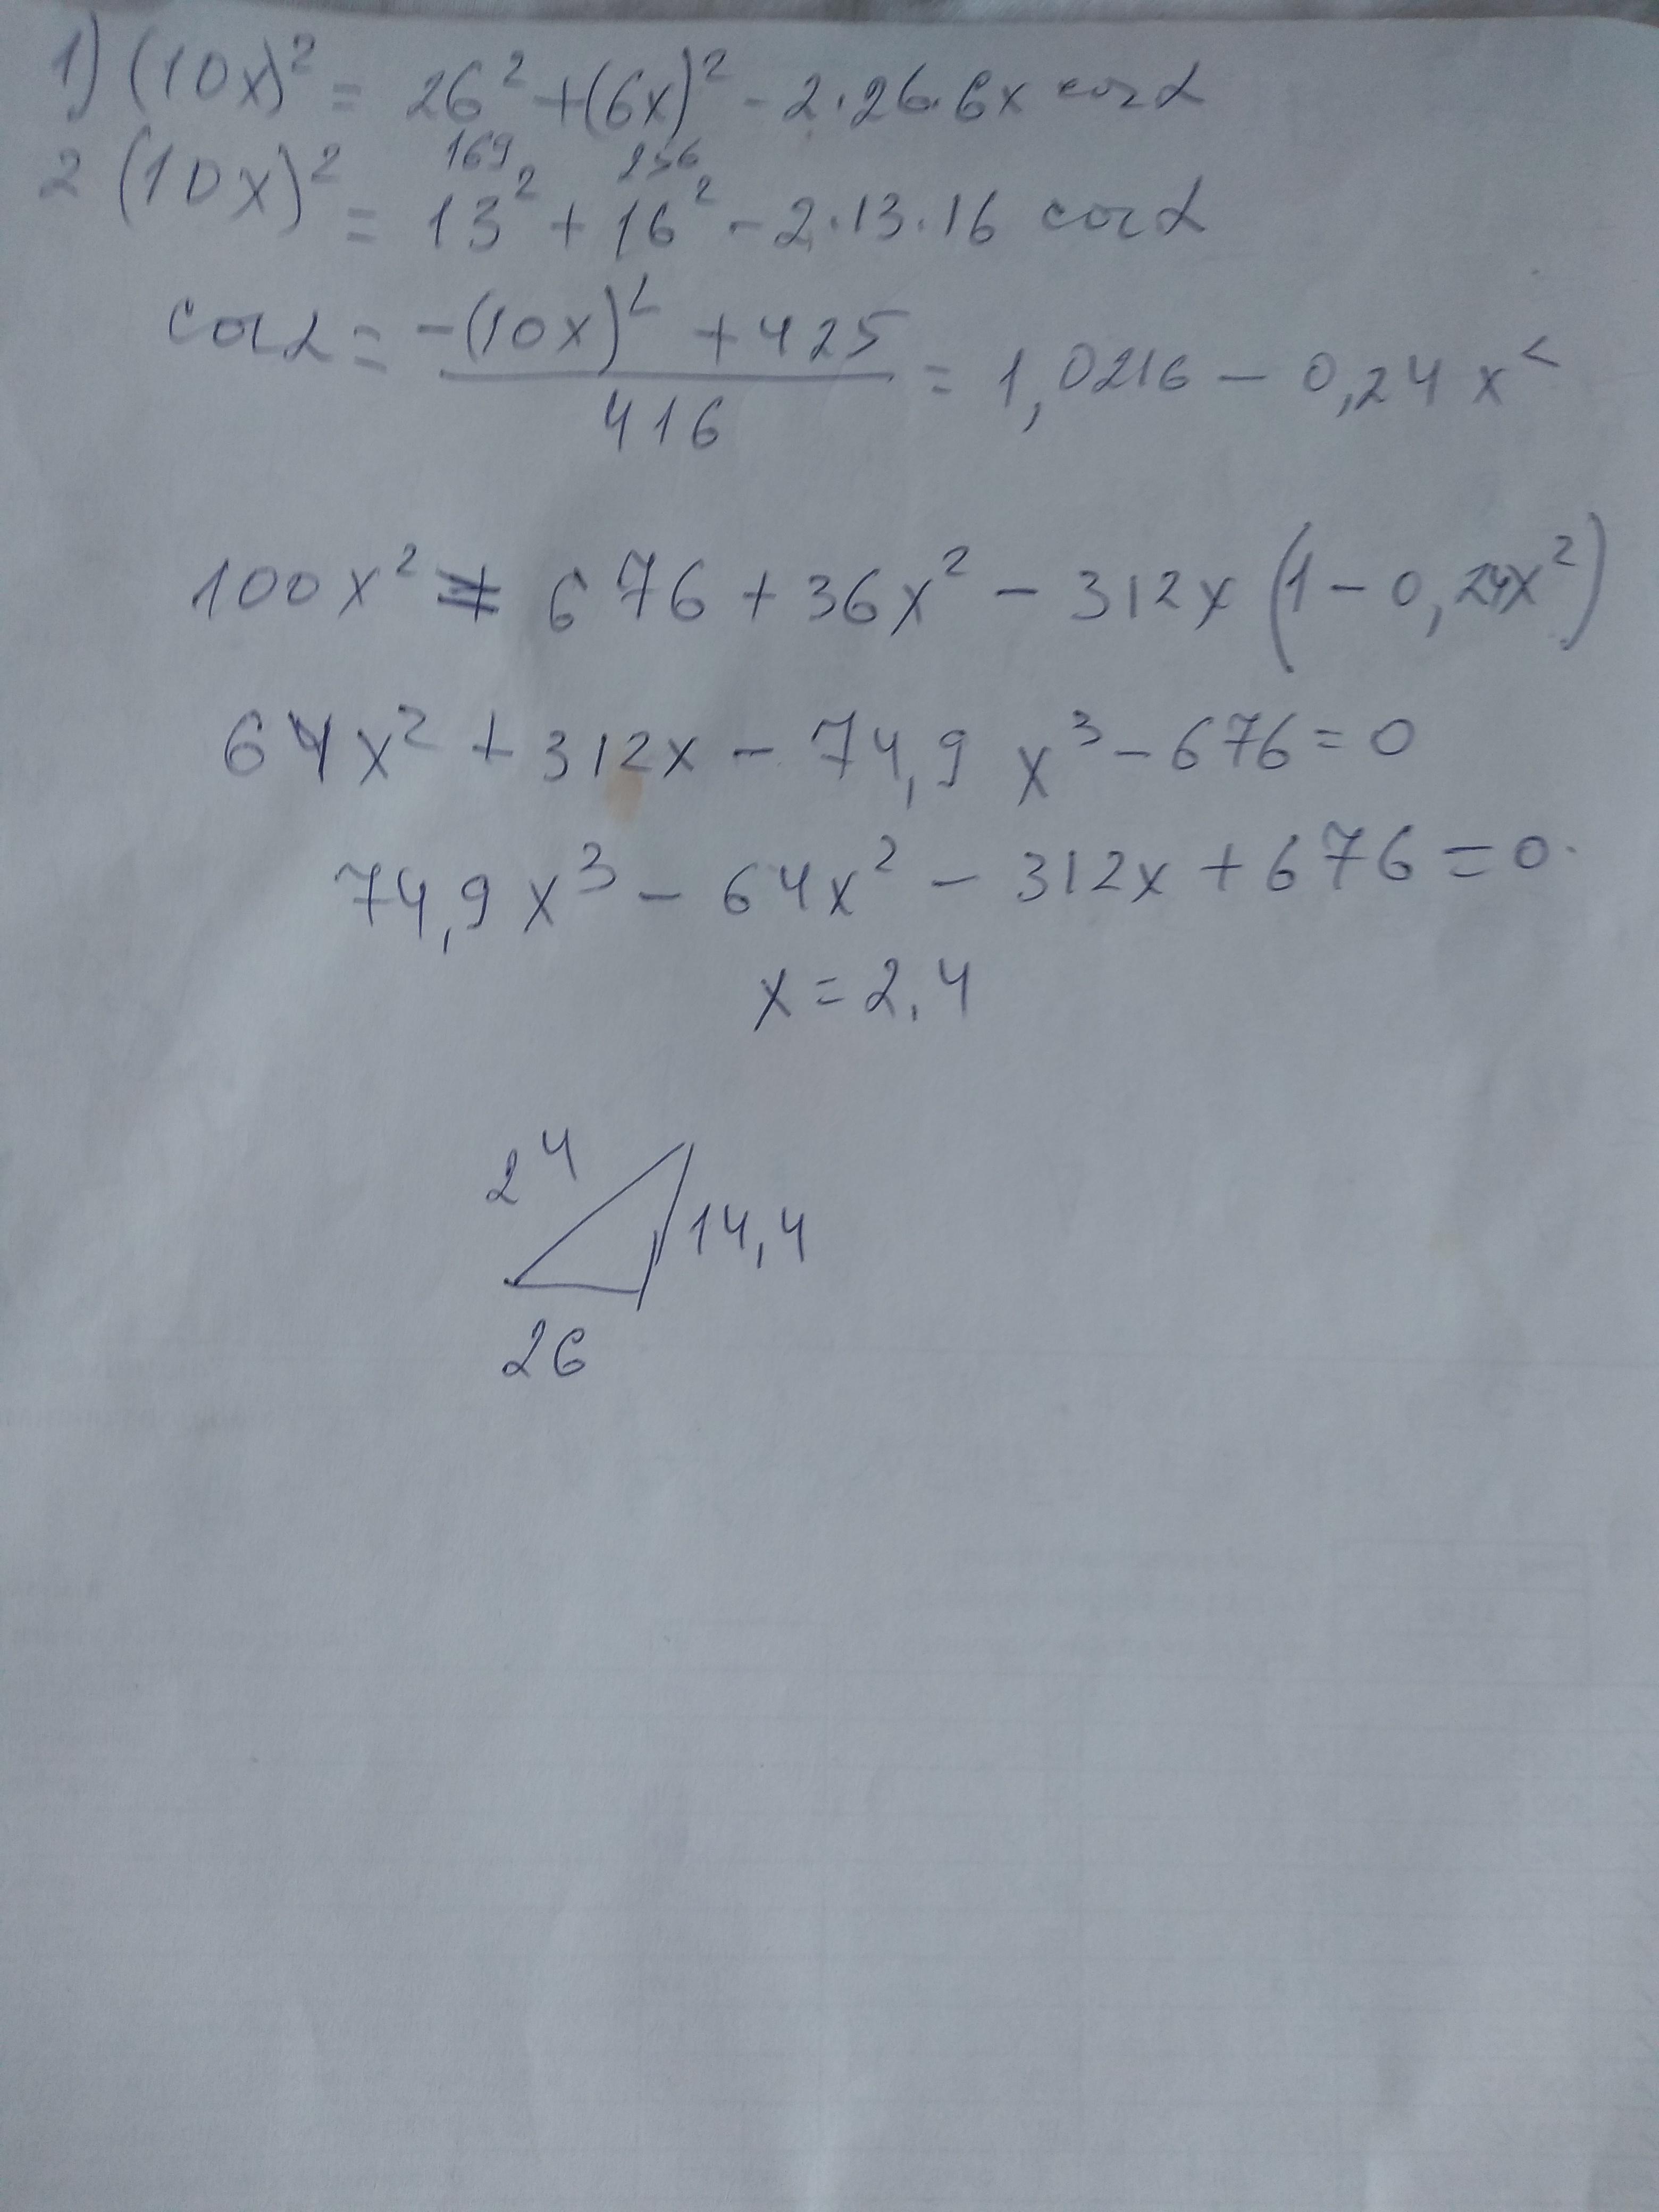 1) (10x)² = 26² + (6x)² - 2·26·6x cos α
169 256
2 (10x)² = 13² + 16² - 2·13·16 cos α
cos α = (-(10x)² + 425) / 416 = 1,0216 - 0,24 x²
100x² = 676 + 36x² - 312x (1 - 0,24x²)
64x² + 312x - 74,9 x³ - 676 = 0
74,9 x³ - 64x² - 312x + 676 = 0.
x = 2,4
24
14,4
26